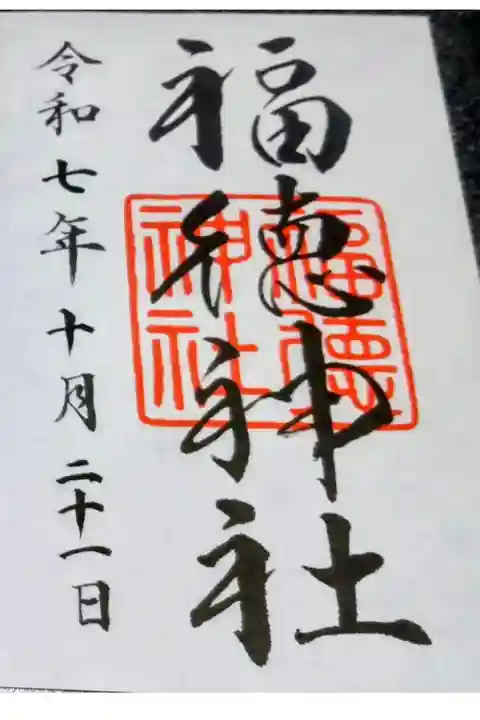 福徳神社
福徳神社
令和七年十月二十一日